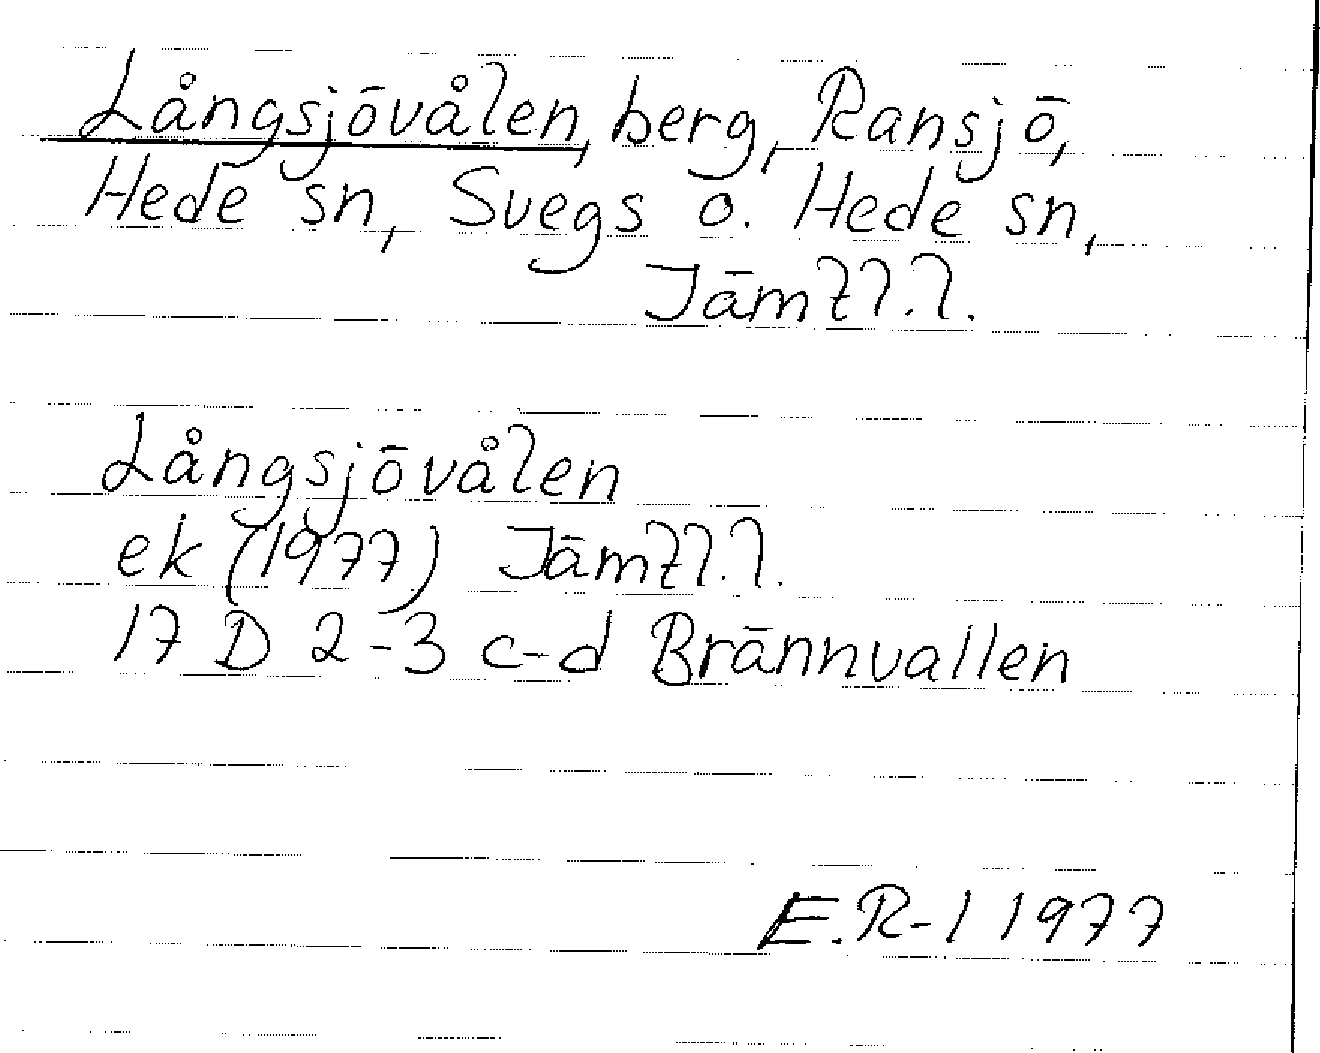 Långsjövålen, berg, Ransjö,
Hede sn, Svegs o. Hede sn,
Jämtl.l.
Långsjövålen
ek (1977) Jämtl.l.
17 D 2-3 c-d Brännvallen
E.R-l 1977